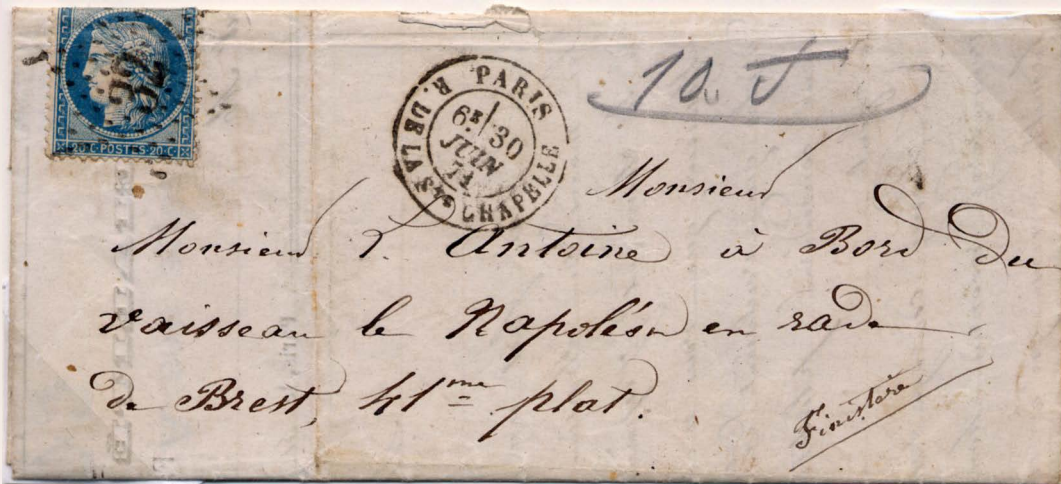 20·C·POSTES·20·C
22
PARIS
R. DE LA STE CHAPELLE
6E 30
JUIN
71
Monsieur
Monsieur L. Antoine à Bord du
vaisseau le Napoléon en rade
de Brest, 41me plat.
Finistère